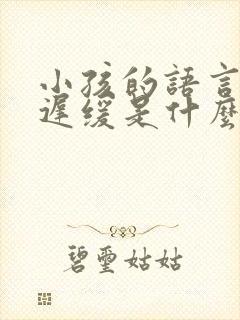 小孩的語言
遲緩是什麼
碧璽姑姑